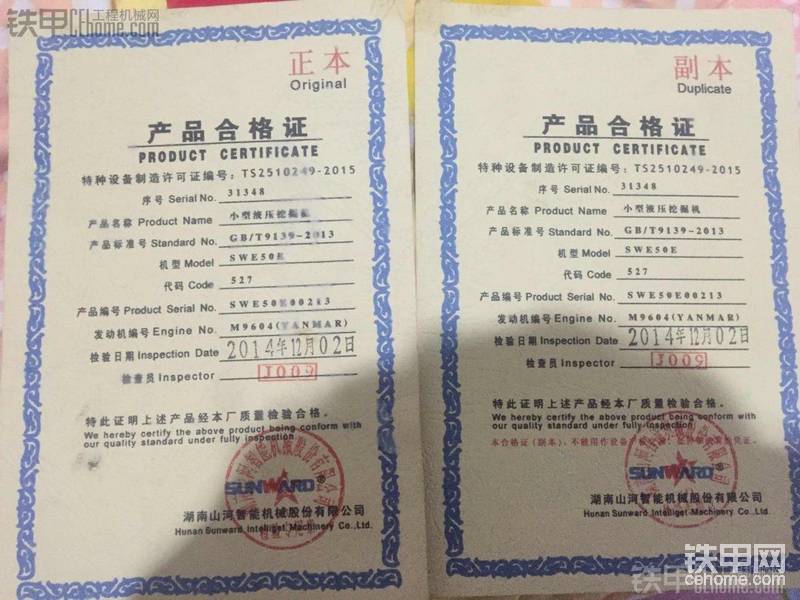 铁甲 工程机械网
CEhome.com
正本
Original
产品合格证
PRODUCT CERTIFICATE
特种设备制造许可证编号：TS2510249-2015
序号 Serial No. 31348
产品名称 Product Name 小型液压挖掘机
产品标准号 Standard No. GB/T9139-2013
机型 Model SWE50E
代码 Code 527
产品编号 Product Serial No. SWE50E00213
发动机编号 Engine No. M9604(YANMAR)
检验日期 Inspection Date 2014年12月02日
检查员 Inspector J009
特此证明上述产品经本厂质量检验合格。
We hereby certify the above product being conform with
our quality standard under fully inspection
SUNWARD®
湖南山河智能机械股份有限公司
Hunan Sunward Intelliget Machinery Co.,Ltd.
副本
Duplicate
产品合格证
PRODUCT CERTIFICATE
特种设备制造许可证编号：TS2510249-2015
序号 Serial No. 31348
产品名称 Product Name 小型液压挖掘机
产品标准号 Standard No. GB/T9139-2013
机型 Model SWE50E
代码 Code 527
产品编号 Product Serial No. SWE50E00213
发动机编号 Engine No. M9604(YANMAR)
检验日期 Inspection Date 2014年12月02日
检查员 Inspector J009
特此证明上述产品经本厂质量检验合格。
We hereby certify the above product being conform with
our quality standard under fully inspection
本合格证（副本），不能用作设备
SUNWARD®
湖南山河智能机械股份有限公司
Hunan Sunward Intelliget Machinery Co.,Ltd.
铁甲网
cehome.com